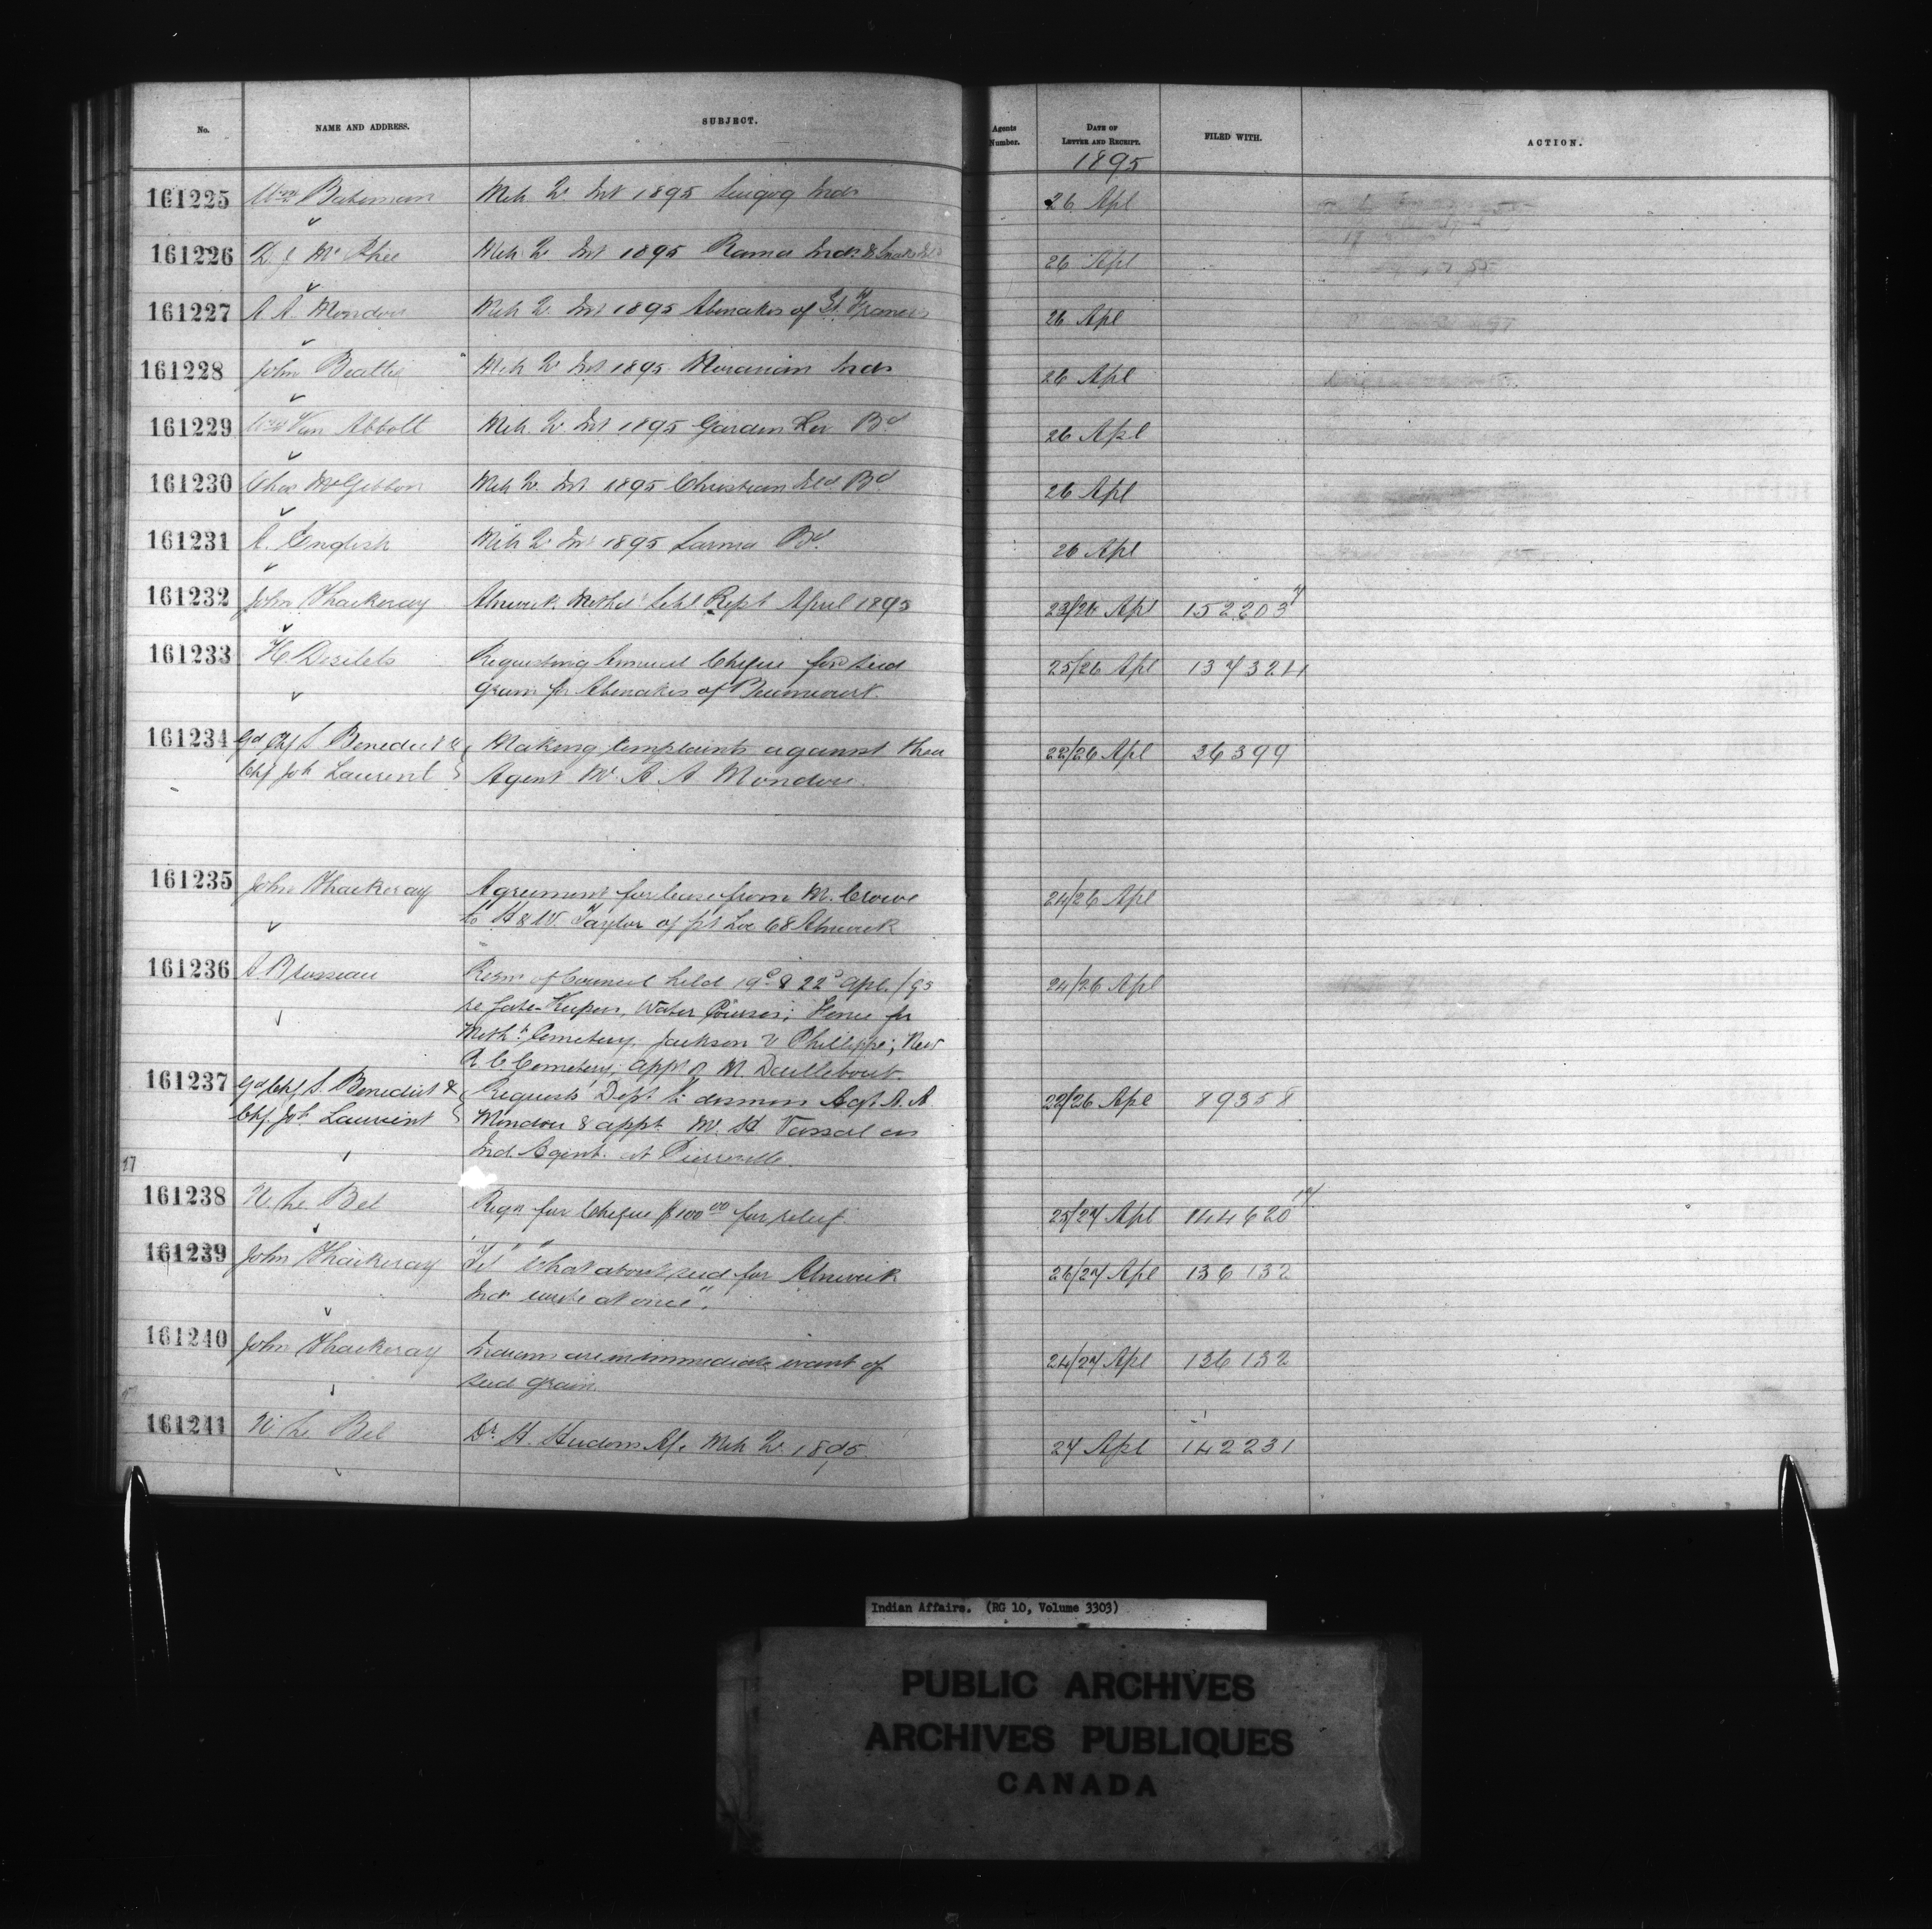 No. NAME AND ADDRESS. SUBJECT. Agents Number. DATE OF LETTER AND RECEIPT. FILED WITH. ACTION.
1895
161225 Wm Bateman Mch Qr Int 1895 Scugog Inds 26 Apl
161226 D J McPhee Mch Qr Int 1895 Rama Inds & Snake Isld 26 Apl
161227 A A Mondou Mch Qr Int 1895 Abenakis of St Francis 26 Apl
161228 John Beattie Mch Qr Int 1895 Moravian Inds 26 Apl
161229 Wm Van Abbott Mch Qr Int 1895 Garden Riv Bd 26 Apl
161230 Chas McGibbon Mch Qr Int 1895 Christian Ild Bd 26 Apl
161231 A. English Mch Qr Int 1895 Sarnia Bd 26 Apl
161232 John Thackeray Alnwick Schl Rept April 1895 23/26 Apl 152203
161233 H Desilets Requesting Cheque for seed 25/26 Apl 137324
grain for Abenakis of Becancourt.
161234 Gd Chf S. Benedict & Making Complaints against their 22/26 Apl 36399
Chf Jos Laurent Agent Mr A. A Mondou
161235 John Thackeray Agreement for lease from M. Crowe 24/26 Apl
to H & W. Taylor of pt Lot 68 Alnwick
161236 A Brosseau Resns of Council held 19th & 22d Apl. /95 24/26 Apl
re Gate-Keepers, Water Courses; Fence for
Meth. Cemetery, Jackson v Phillippe; New
R C Cemetery; appt of M. Daillebout.
161237 Gd Chf S. Benedict & Requests Dept to dismiss Agt A. A 22/26 Apl 89358
Chf. Jos Laurent Mondou & appt. Mr. H Vassal as
Ind. Agent. at Pierreville.
17
161238 N. Le Bel Reqn for Cheque $100 00 for relief. 25/27 Apl 144620
161239 John Thackeray Tel "What about seed for Alnwick 26/27 Apl 136132
Inds write at once".
161240 John Thackeray Indians are in immediate want of 24/27 Apl 136132
seed grain.
161241 N Le Bel Dr H. Hudon a/c Mch Qr 1895. 27 Apl 142231
Indian Affairs. (RG 10, Volume 3303)
PUBLIC ARCHIVES
ARCHIVES PUBLIQUES
CANADA